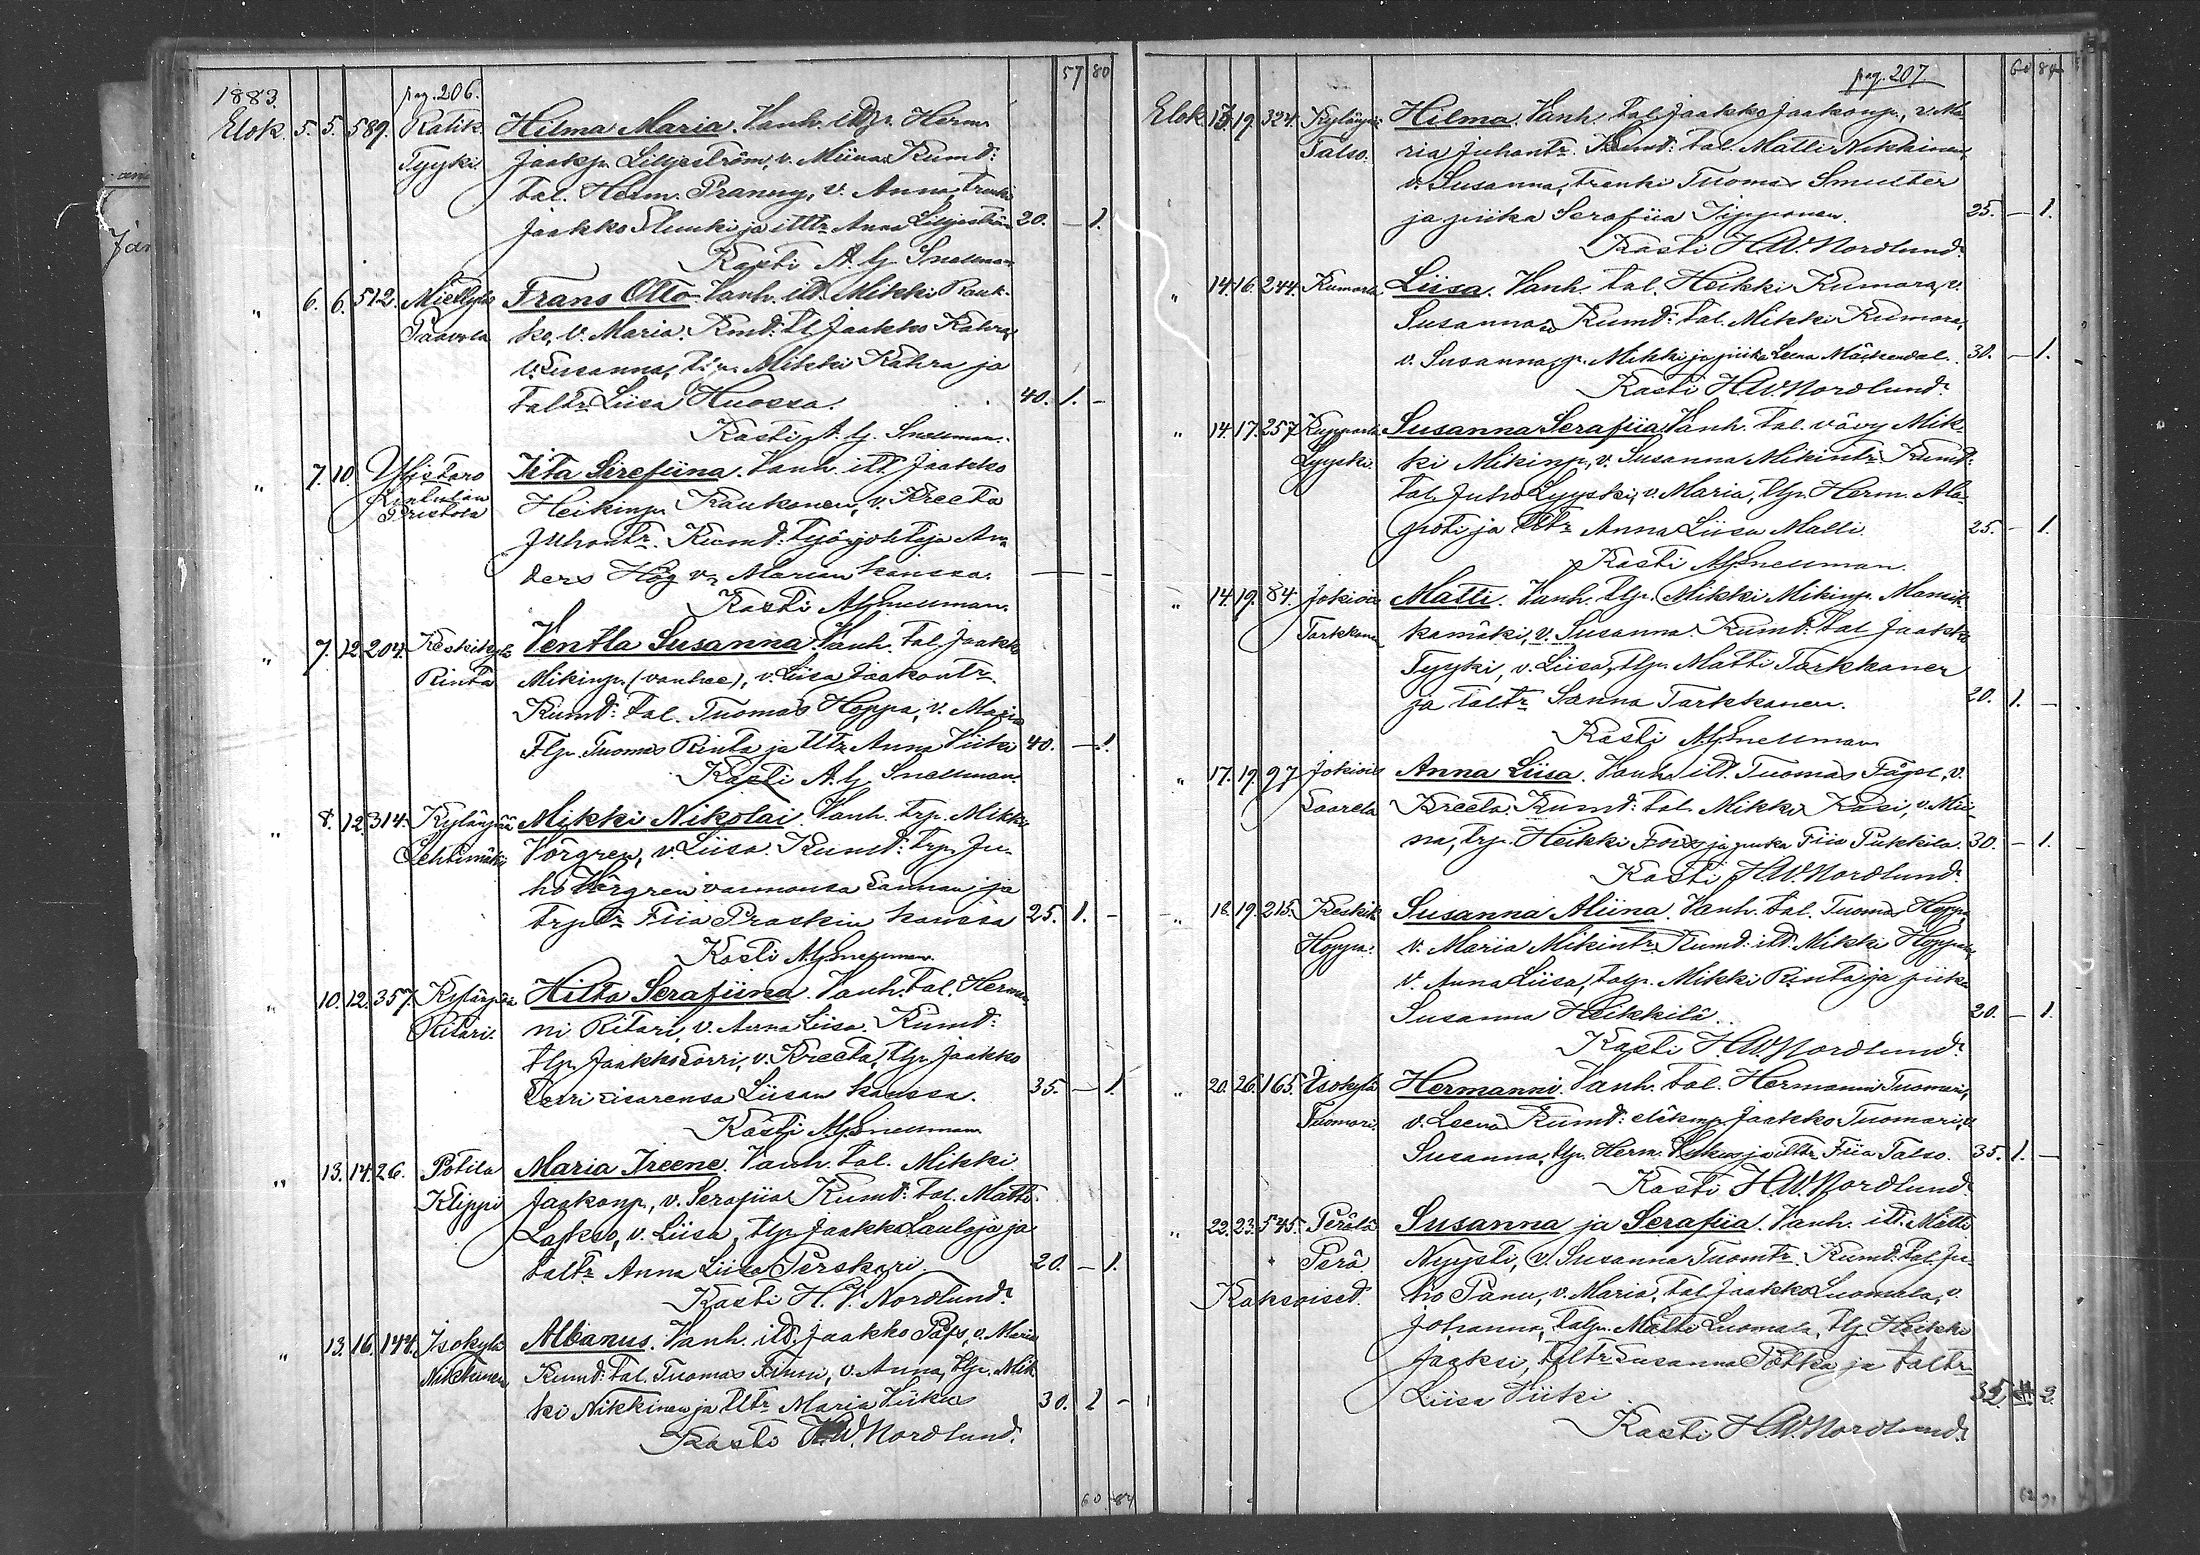 57 80
1883. pag. 206.
Elok. 5. 5. 589. Ratik. Hilma Maria. Vanh. Herm.
Tyyki. Jaakp. Liljeström, v. Miina. Kumd:
tal. Herm. v. Anna, trenki
Jaakko ja Anna Liljeström 20. — 1.
Kasti A. G. Snellman
" 6. 6. 512. Frans Otto. Vanh. itl. Mikki Rauk-
Paavola ko, v. Maria. Kmd: Jaakko Kahra,
v. Susanna, Mikki Kahra ja
taltr Liisa Huossa. 40. 1. —
Kasti A. G. Snellman.
" 7. 10. Ylistaro Iita Sirefiina. Vanh. itl Jaakko
Heikinp. Kaukonen, v. Kreeta
Juhontr. Kumd: työnjohtaja An-
ders Hög v. Marian kanssa. — —
Kasti A. G. Snellman.
" 7. 12. 204. Keskikylä Ventla Susanna. Vanh. tal. Jaakko
Rinta Mikinp. (vanhee), v. Liisa Jaakontr.
Kumd: tal. Tuomas Hoppa, v. Maria
Tlp. Tuomas Rinta ja Utr Anna Viiki 40. — 1.
Kasti A. G. Snellman.
" 8. 12. 314. Kylänpää Mikki Nikolai. Vanh. trp. Mikki
Lehtimäki Vörgren, v. Liisa. Kumd: trp. Ju-
ho Vörgren vaimonsa Sannan ja
trp. tr Fiia Praskin kanssa 25. 1. —
Kasti A. G. Snellman.
" 10. 12. 357. Kylänpää Hilta Serafiina. Vanh. tal. Herman-
Ritari. ni Ritari, v. Anna Liisa. Kumd:
tlp. Jaakko Sorri, v. Kreeta, tlp. Jaakko
sisarensa Liisan kanssa. 35. — 1.
Kasti A. G. Snellman
" 13. 14. 26. Potila Maria Ireene. Vanh. tal. Mikki
Klippi Jaakonp., v. Serafiia. Kumd: tal. Matti
v. Liisa, tlp. Jaakko Laulaja ja
taltr Anna Liisa Perskari. 20. — 1.
Kasti H. V. Nordlund.
" 13. 16. 144. Isokylä Albanus. Vanh. itl. Jaakko v. Maria
Nikkinen Kumd: tal. Tuomas Finni, v. Anna, tlp. Mik-
ki Nikkinen ja Utr Maria Viiki 30. 1 —
Kasti H. W. Nordlund.
60. 84
pag. 207 60 84
Elok 13. 19. 324. Kylänpää Hilma. Vanh. tal. Jaakko Jaakonp., v. Ma-
Talso. ria Juhontr. Kumd: tal. Matti Nikkinen,
v. Susanna, trenki Tuomas Smulter
ja piika Serafiia Tipponen. 25. — 1.
Kasti H. W. Nordlund.
" 14. 16. 244. Kumara. Liisa. Vanh. tal. Heikki Kumara, v.
Susanna. Kumd: tal. Mikki Kumara,
v. Susanna, p. Mikki ja piika Leena 30. — 1.
Kasti H. W. Nordlund.
" 14. 17. 257 Susanna Serafiia. Vanh. tal. vävy Mik-
Lyyski. ki Mikinp., v. Susanna Mikintr. Kumd:
tal. Juho Lyyski, v. Maria, tlp. Herm. Ala-
poti ja Utr Anna Liisa Malli. 25. — 1.
Kasti A. G. Snellman.
" 14. 19. 84. Jokioi Matti. Vanh. tlp. Mikki Mikinp. Mansik-
Tarkkanen kamäki, v. Susanna. Kumd: tal. Jaakko
Tyyki, v. Liisa, tlp. Matti Tarkkanen
ja taltr Sanna Tarkkanen. 20. 1. —
Kasti A. G. Snellman
" 17. 19. 97 Jokioi Anna Liisa. Vanh. itl. Tuomas v.
Saarela Kreeta. Kumd: tal. Mikki Kasi, v. Mii-
na, trp. Heikki ja piika Fiia Pukkila. 30. — 1.
Kasti H. W. Nordlund.
" 18. 19. 215. Keskik. Susanna Aliina. Vanh. tal. Tuomas Hoppa,
Hoppa. v. Maria Mikintr. Kumd: itl. Mikki Hoppa
v. Anna Liisa, talp. Mikki Rinta ja piika
Susanna Heikkilä. 20. — 1.
Kasti H. W. Nordlund.
" 20. 26. 165. Isokylä Hermanni. Vanh. tal. Hermanni Tuomari,
Tuomari. v. Leena. Kumd: Jaakko Tuomari, v.
Susanna, tlp. Herm. ja Fiia Talso. 35. 1. —
Kasti H. W. Nordlund.
" 22. 23. 545. Perälä Susanna ja Serafiia. Vanh. itl. Matti
Perä. Nyysti, v. Susanna Tuomtr. Kumd: tal. Ju-
Kaksoiset. ho Panu, v. Maria, tal. Jaakko Luomala, v.
Johanna, talp. Matti Luomala, tlp. Heikki
Jaaksi, taltr Susanna Pötkä ja taltr
Liisa Viiki. 35. 2.
Kasti H. W. Nordlund.